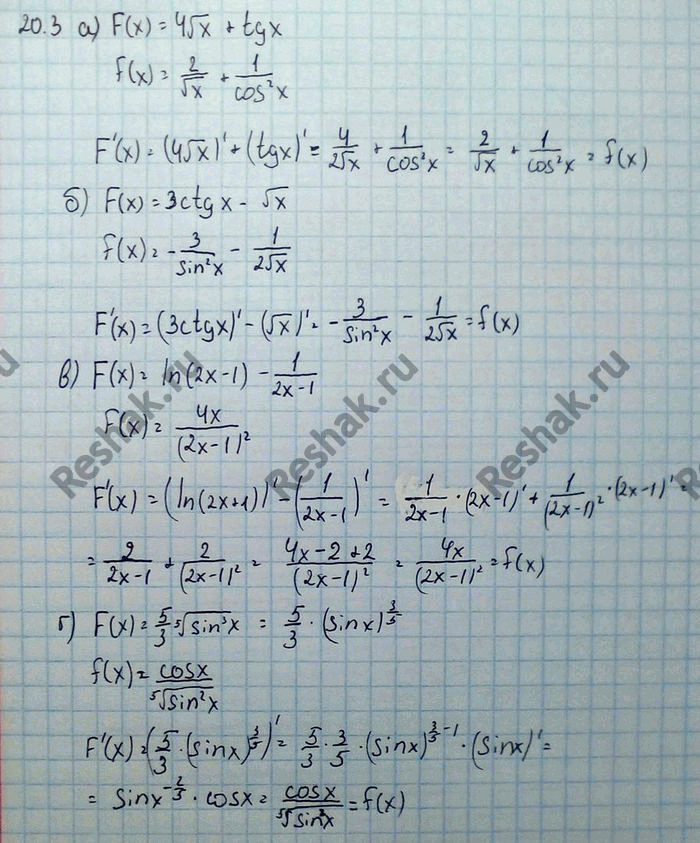 20.3 а) F(x) = 4√x + tgx
f(x) = 2/√x + 1/cos²x
F'(x) = (4√x)' + (tgx)' = 4/2√x + 1/cos²x = 2/√x + 1/cos²x = f(x)
б) F(x) = 3ctgx - √x
f(x) = -3/sin²x - 1/2√x
F'(x) = (3ctgx)' - (√x)' = -3/sin²x - 1/2√x = f(x)
в) F(x) = ln(2x-1) - 1/2x-1
f(x) = 4x/(2x-1)²
F'(x) = (ln(2x+1))' - (1/2x-1)' = 1/2x-1 · (2x-1)' + 1/(2x-1)² · (2x-1)' =
= 2/2x-1 + 2/(2x-1)² = 4x-2+2/(2x-1)² = 4x/(2x-1)² = f(x)
г) F(x) = 5/3 ⁵√sin³x = 5/3 · (sinx)^3/5
f(x) = cosx/⁵√sin²x
F'(x) = (5/3 · (sinx)^3/5)' = 5/3 · 3/5 · (sinx)^3/5-1 · (sinx)' =
= sinx^-2/5 · cosx = cosx/⁵√sin²x = f(x)
Reshak.ru
Reshak.ru
Reshak.ru